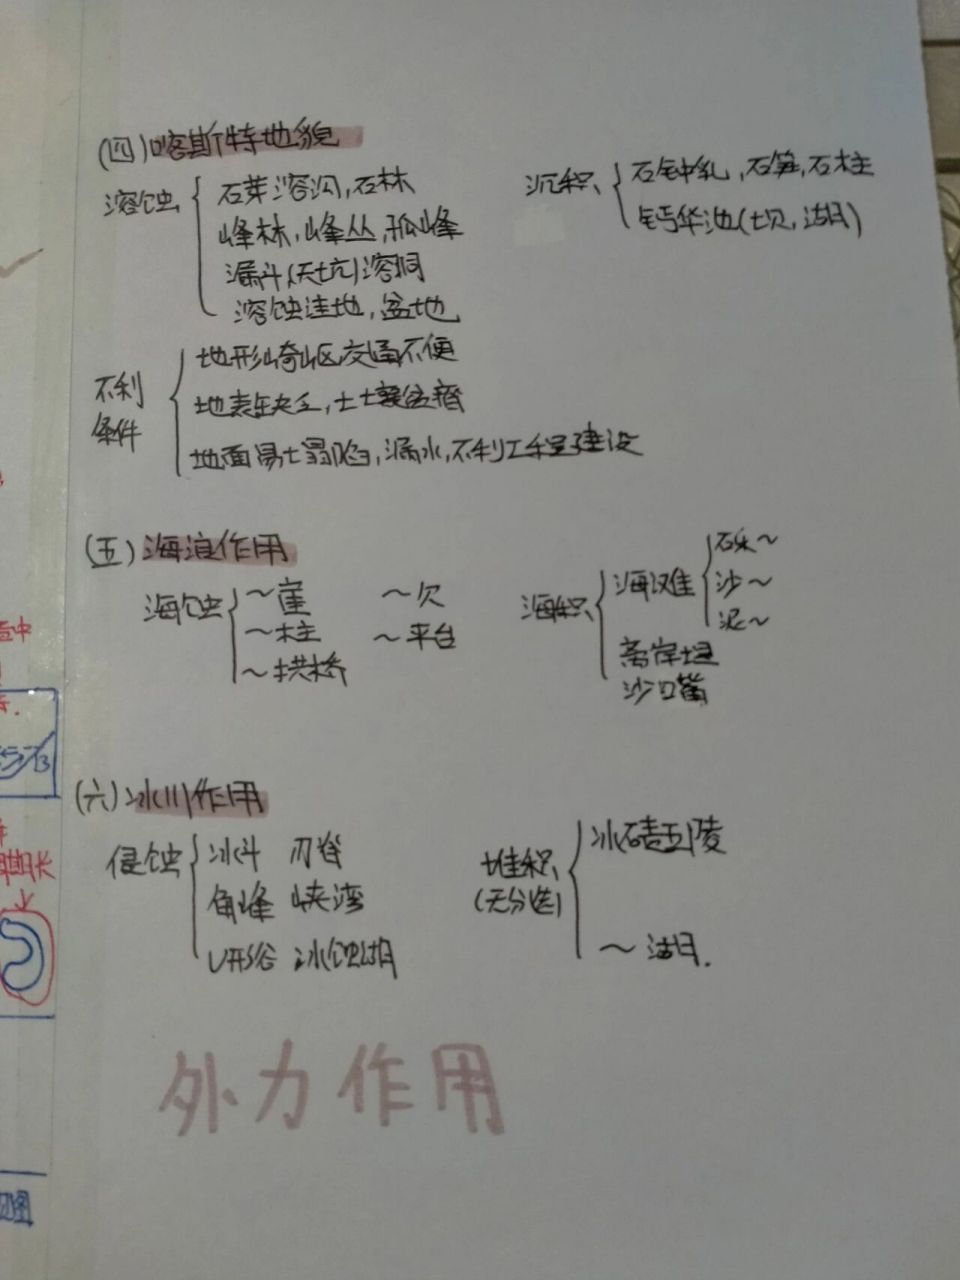 (四)喀斯特地貌
溶蚀 石芽溶沟,石林
峰林,峰丛,孤峰
漏斗(天坑)溶洞
溶蚀洼地,盆地
沉积 石钟乳,石笋,石柱
钙华池(坝,湖)
不利条件
地形崎岖交通不便
地表缺乏,土壤贫瘠
地面易塌陷,漏水,不利工程建设
(五)海浪作用
海蚀 ~崖 ~穴
~柱 ~平台
~拱桥
海积 海滩 砾~
沙~
泥~
离岸堤
沙嘴
(六)冰川作用
侵蚀 冰斗 刃脊
角峰 峡湾
U形谷 冰蚀湖
堆积 冰碛丘陵
(无分选)
~湖.
外力作用
期长